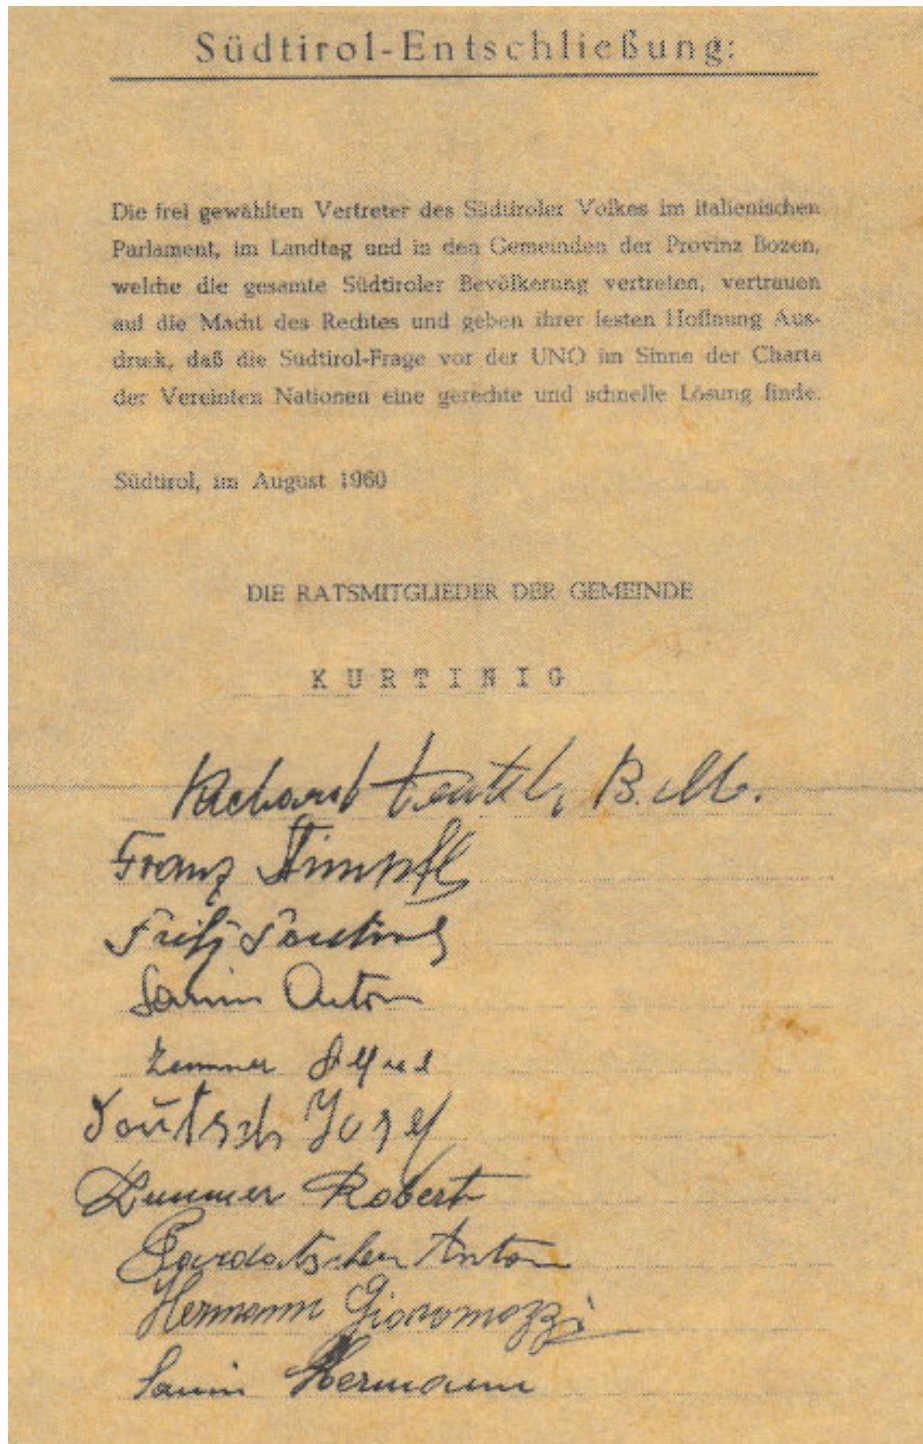 Südtirol-Entschließung:
Die frei gewählten Vertreter des Südtiroler Volkes im italienischen
Parlament, im Landtag und in den Gemeinden der Provinz Bozen,
welche die gesamte Südtiroler Bevölkerung vertreten, vertrauen
auf die Macht des Rechtes und geben ihrer festen Hoffnung Aus-
druck, daß die Südtirol-Frage vor der UNO im Sinne der Charta
der Vereinten Nationen eine gerechte und schnelle Lösung finde.
Südtirol, im August 1960
DIE RATSMITGLIEDER DER GEMEINDE
KURTINIG
Richard B.M.
Franz
Fritz
Sanin Anton
Zemmer
Josef
Zemmer Robert
Pardatscher Anton
Hermann Giovomozzi
Sanin Hermann